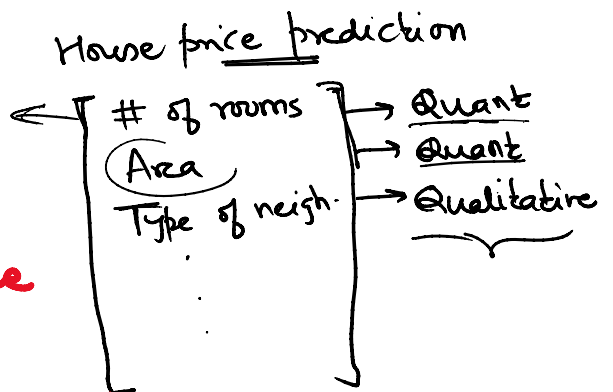 House price prediction
# of rooms → Quant
Area → Quant
Type of neigh. → Qualitative